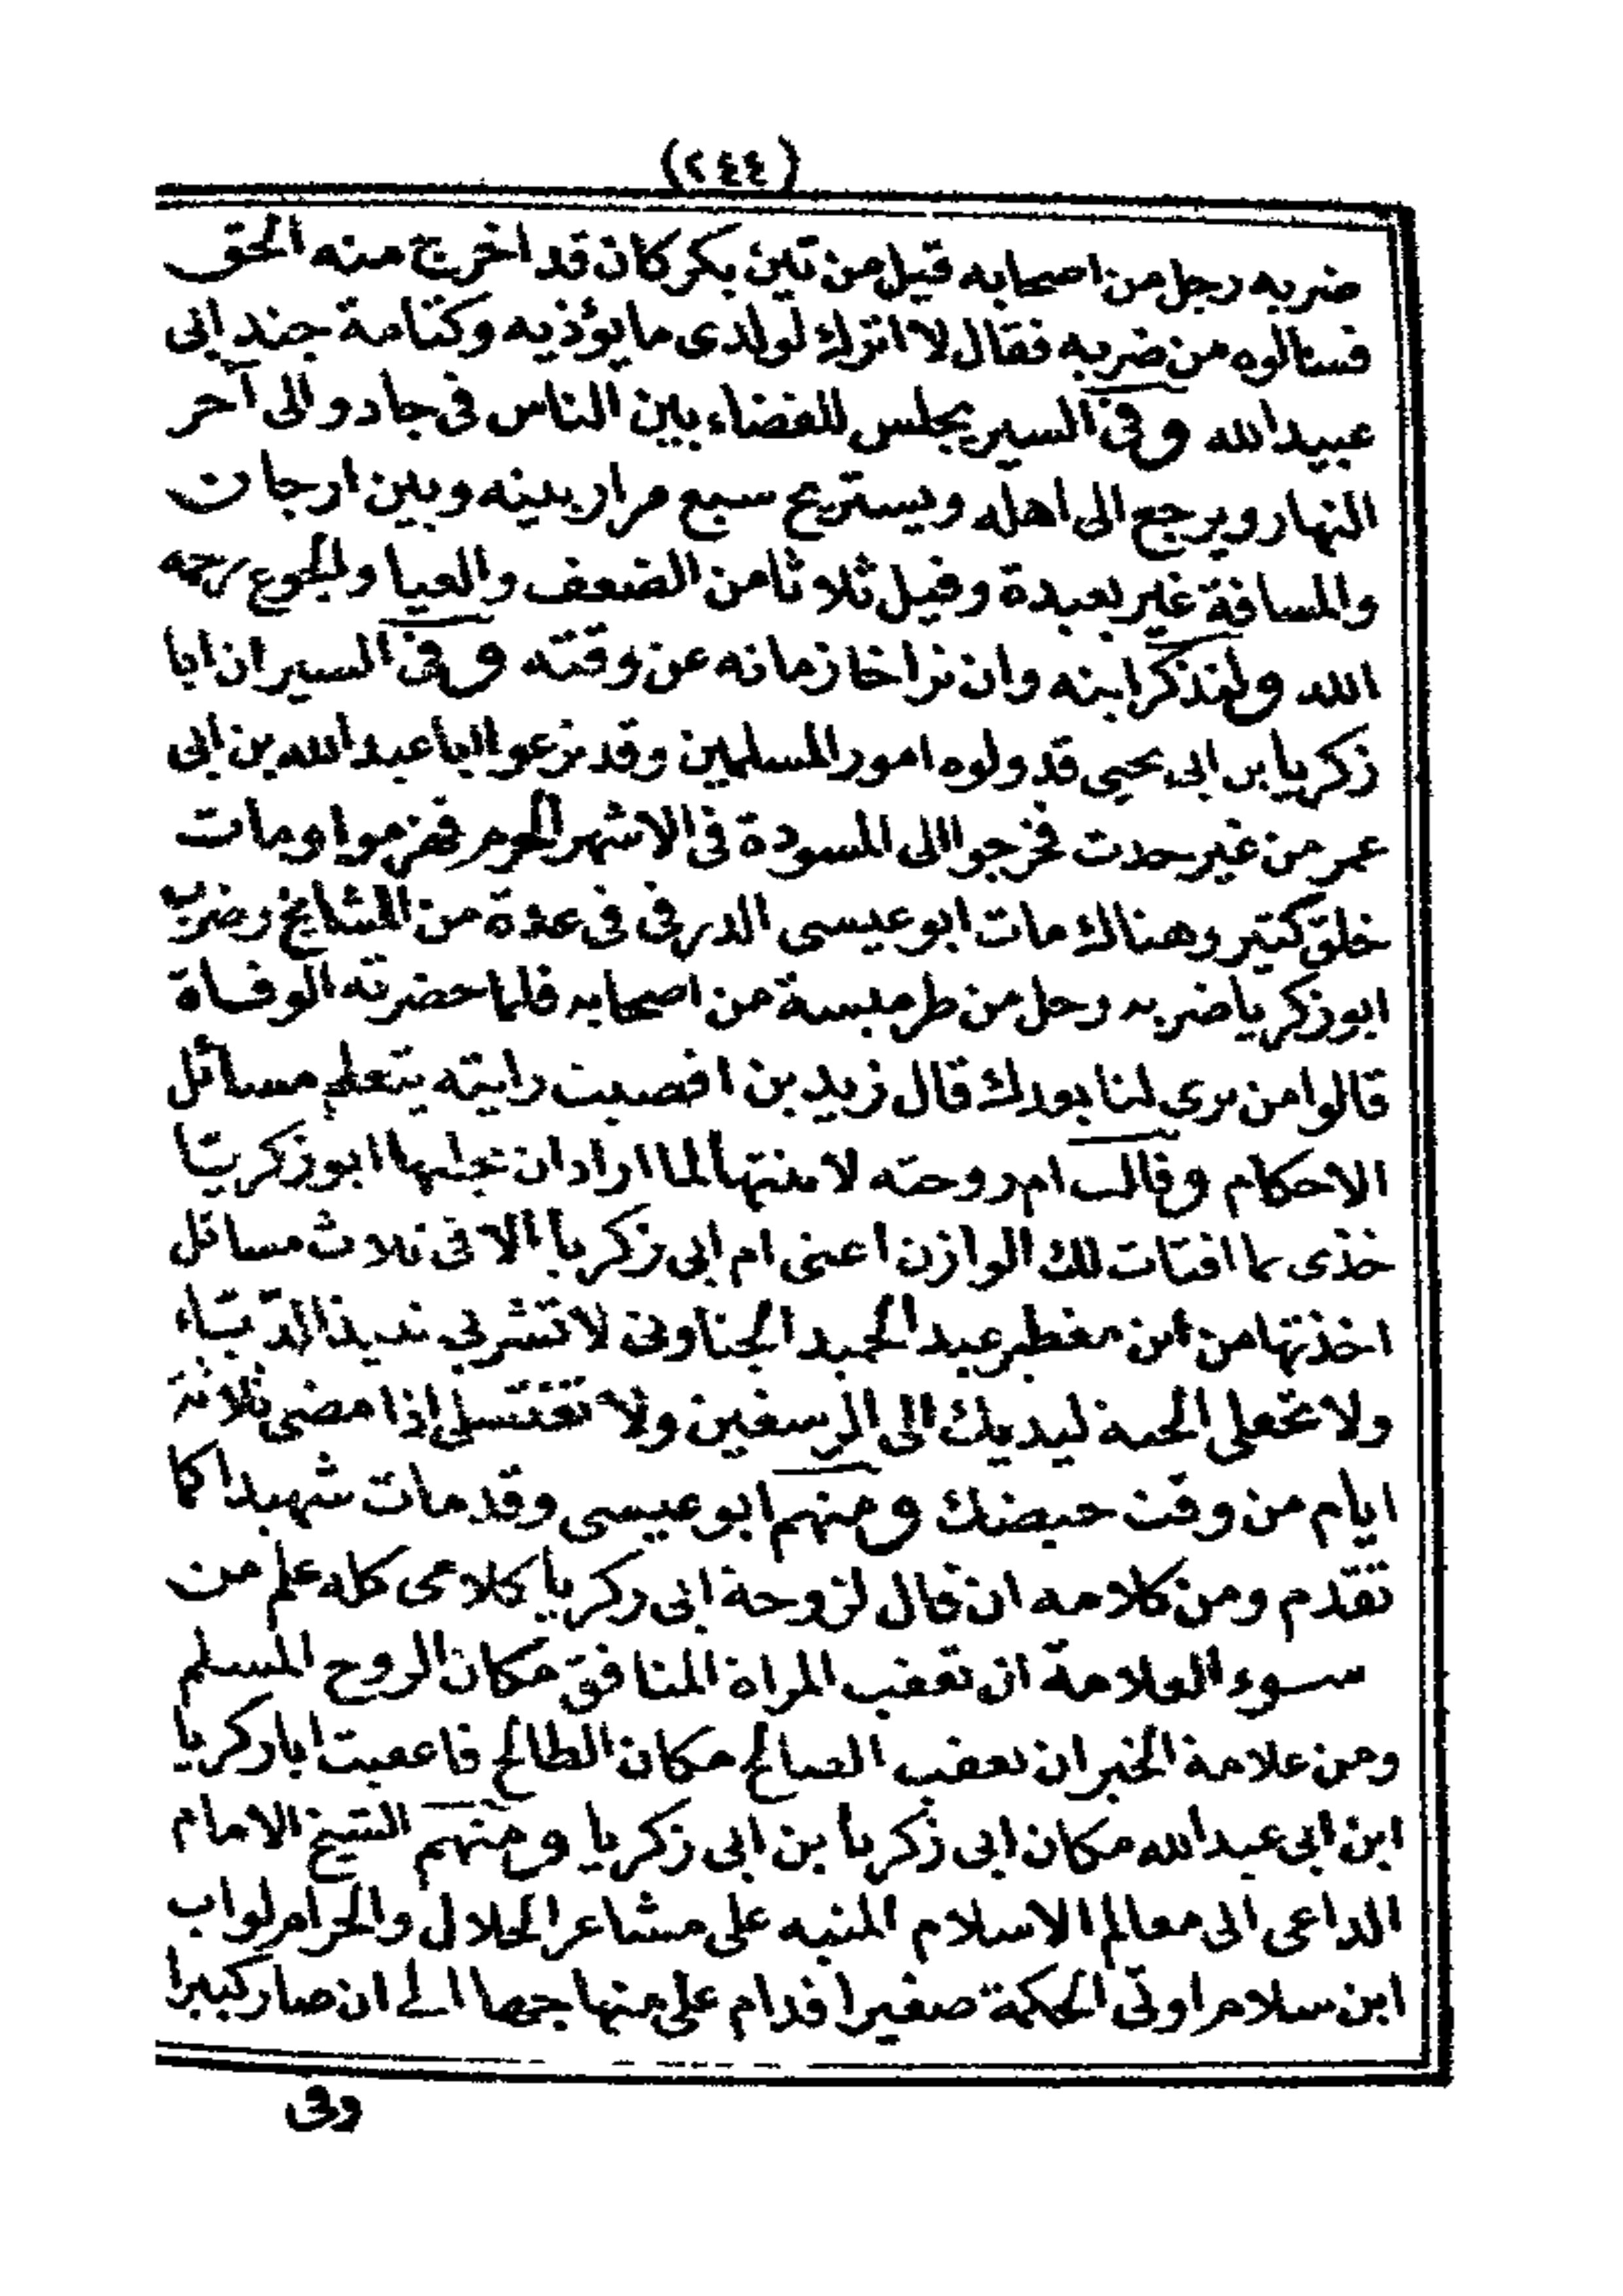 (٢٤٤)
ضربه رجل من اصحابه قيل من تين بكر كان قد اخرج منه الحق
فسالوه من ضربه فقال لا اترك لولدى ما يؤذيه وكتامة جند ابى
عبيد الله وفى السير يجلس للقضاء بين الناس فى جادو الى آخر
النهار ويرجع الى اهله ويستريح سبع مرار بينه وبين ارجان
والمسافة غير بعيدة وقيل ثلاثا من الضعف والعيا والجوع رحمه
الله ولنذكر ابنه وان تراخا زمانه عن وقته وفى السير ان ابا
زكريا بن ابى يحيى قد ولوه امور المسلمين وقد نزعوا ابا عبد الله بن ابى
عمر من غير حدث فخرجوا الى المسودة فى الاشهر الحرم فهزموا ومات
خلق كثير وهناك مات ابو عيسى الدرفى فى عدة من المشايخ وضرب
ابو زكريا ضربه رجل من طرميسة من اصحابه فلما حضرته الوفاة
قالوا من ترى لنا بعدك قال زيد بن افصيت رايته يتعلم مسائل
الاحكام وقالت ام زوجته لابنتها لما اراد ان يجلبها ابو زكريا
خذى بما افتات لك الوازن اعنى ام ابى زكريا الا فى ثلاث مسائل
اخذتها من ابن مغطير عبد الحميد الجناونى لا تشربى نبيذ الدبّاء
ولا تجعلى الحمة ليديك الى الرسغين ولا تغتسلى اذا مضى ثلاثة
ايام من وقت حيضك ومنهم ابو عيسى وقد مات شهيدا كما
تقدم ومن كلامه ان قال لزوجة ابى زكريا كلامى كله علم من
سوء العلامة ان تعقب المراة المنافق مكان الزوج المسلم
ومن علامة الخير ان تعقب الصالح مكان الطالح فاعقبت ابا زكريا
ابن ابى عبد الله مكان ابى زكريا بن ابى زكريا ومنهم الشيخ الامام
الداعى الى معالم الاسلام المنبه على مشاعر الحلال والحرام لواب
ابن سلام اوتى الحكمة صغيرا فدام على منهاجها الى ان صار كبيرا
وفى